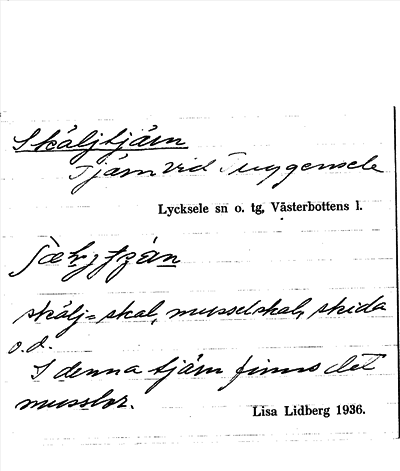 Skäljtjärn
Tjärn vid Tuggensele
Lycksele sn o. tg, Västerbottens l.
skälj = skal, musselskal, skida
o.d.
I denna tjärn finns det
musslor.
Lisa Lidberg 1936.